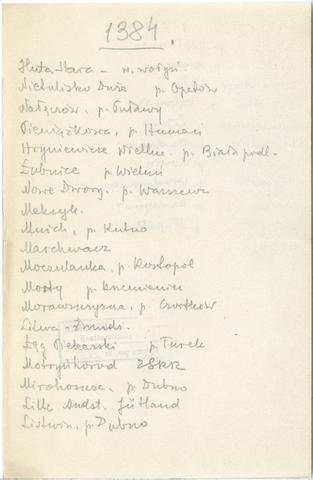 1384.
Huta Stara - n. wołyń.
Nietulisko Duże p. Opatów
Nałęczów, p. Puławy
Pieniążkowa, p. Humań
Hryniewicze Wielkie. p. Biała podl.
Łubnice p. Wieluń
Nowe Dwory. p. Warszawa
Meksyk.
Mnich, p. Kutno
Marchwacz
Moczulanka, p. Kostopol
Mosty p. Krzemieniec
Morawszczyzna, p. Czortków
Litwa - Żmudź.
Łęg Piekarski p. Turek
Motryhorod ZSRR
Mirohoszcza, p. Dubno
Lille Andst. Jütland
Listwin, p. Dubno